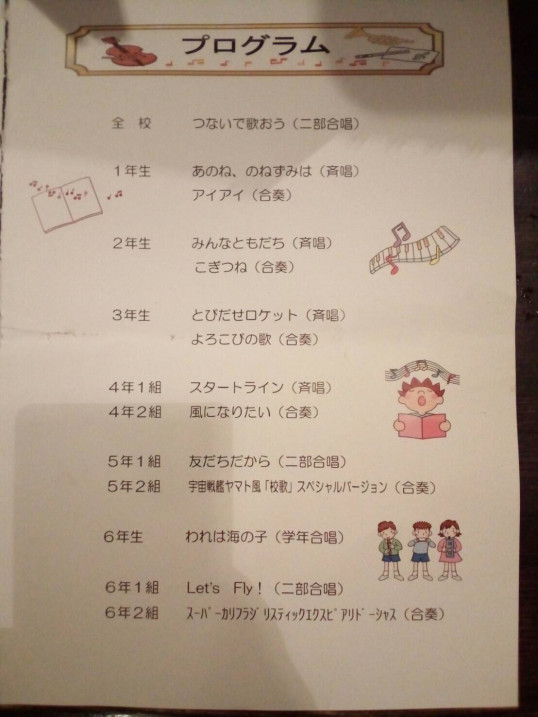 プログラム
全　校　つないで歌おう（二部合唱）
１年生　あのね、のねずみは（斉唱）
アイアイ（合奏）
２年生　みんなともだち（斉唱）
こぎつね（合奏）
３年生　とびだせロケット（斉唱）
よろこびの歌（合奏）
４年１組　スタートライン（斉唱）
４年２組　風になりたい（合奏）
５年１組　友だちだから（二部合唱）
５年２組　宇宙戦艦ヤマト風「校歌」スペシャルバージョン（合奏）
６年生　われは海の子（学年合唱）
６年１組　Let's　Fly！（二部合唱）
６年２組　ｽｰﾊﾟｰｶﾘﾌﾗｼﾞﾘｽﾃｨｯｸｴｸｽﾋﾟｱﾘﾄﾞｰｼｬｽ（合奏）